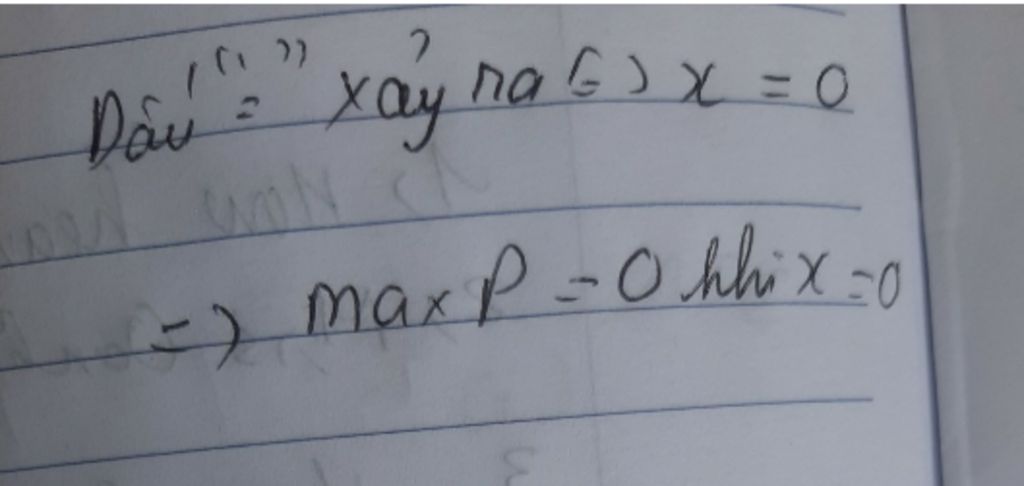 Dấu "=" xảy ra (=) x = 0
=> max P = 0 khi x = 0